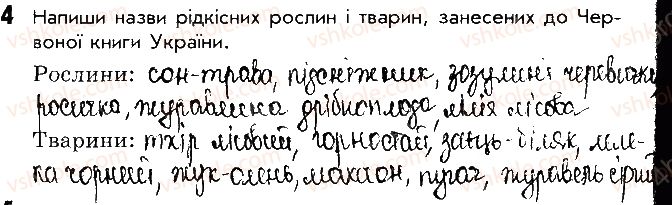 4 Напиши назви рідкісних рослин і тварин, занесених до Чер-
воної книги України.
Рослини: сон-трава, підсніжник, зозулині черевички
росичка, журавлина дрібноплода, лілія лісова
Тварини: тхір лісовий, горностай, заєць-біляк, леле-
ка чорний, жук-олень, махаон, пугач, журавель сірий